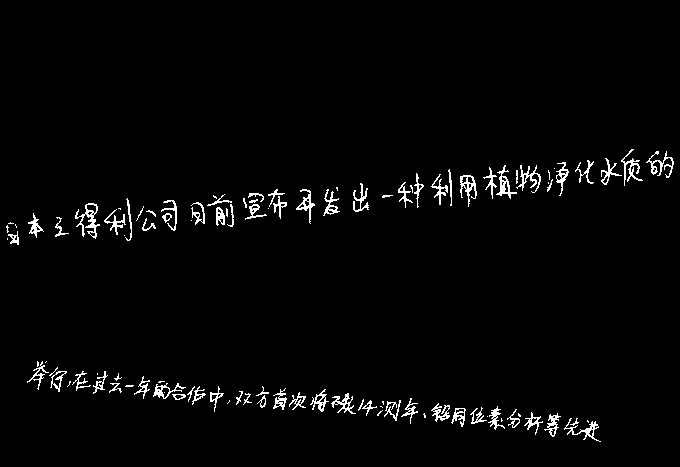 日本三得利公司日前宣布开发出一种利用植物净化水质的
举行,在过去一年的合作中,双方首次将碳14测年、铅同位素分析等先进